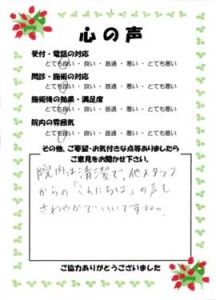 心の声
受付・電話の対応
とても良い・良い・普通・悪い・とても悪い
問診・施術の対応
とても良い・良い・普通・悪い・とても悪い
施術後の効果・満足度
とても良い・良い・普通・悪い・とても悪い
院内の雰囲気
とても良い・良い・普通・悪い・とても悪い
その他、ご要望・お気付きな点等ありましたら
ご意見をお聞かせ下さい。
院内は清潔で、他スタッフ
からの「こんにちは」の声も
さわやかでいいですねっ。
ご協力ありがとうございました